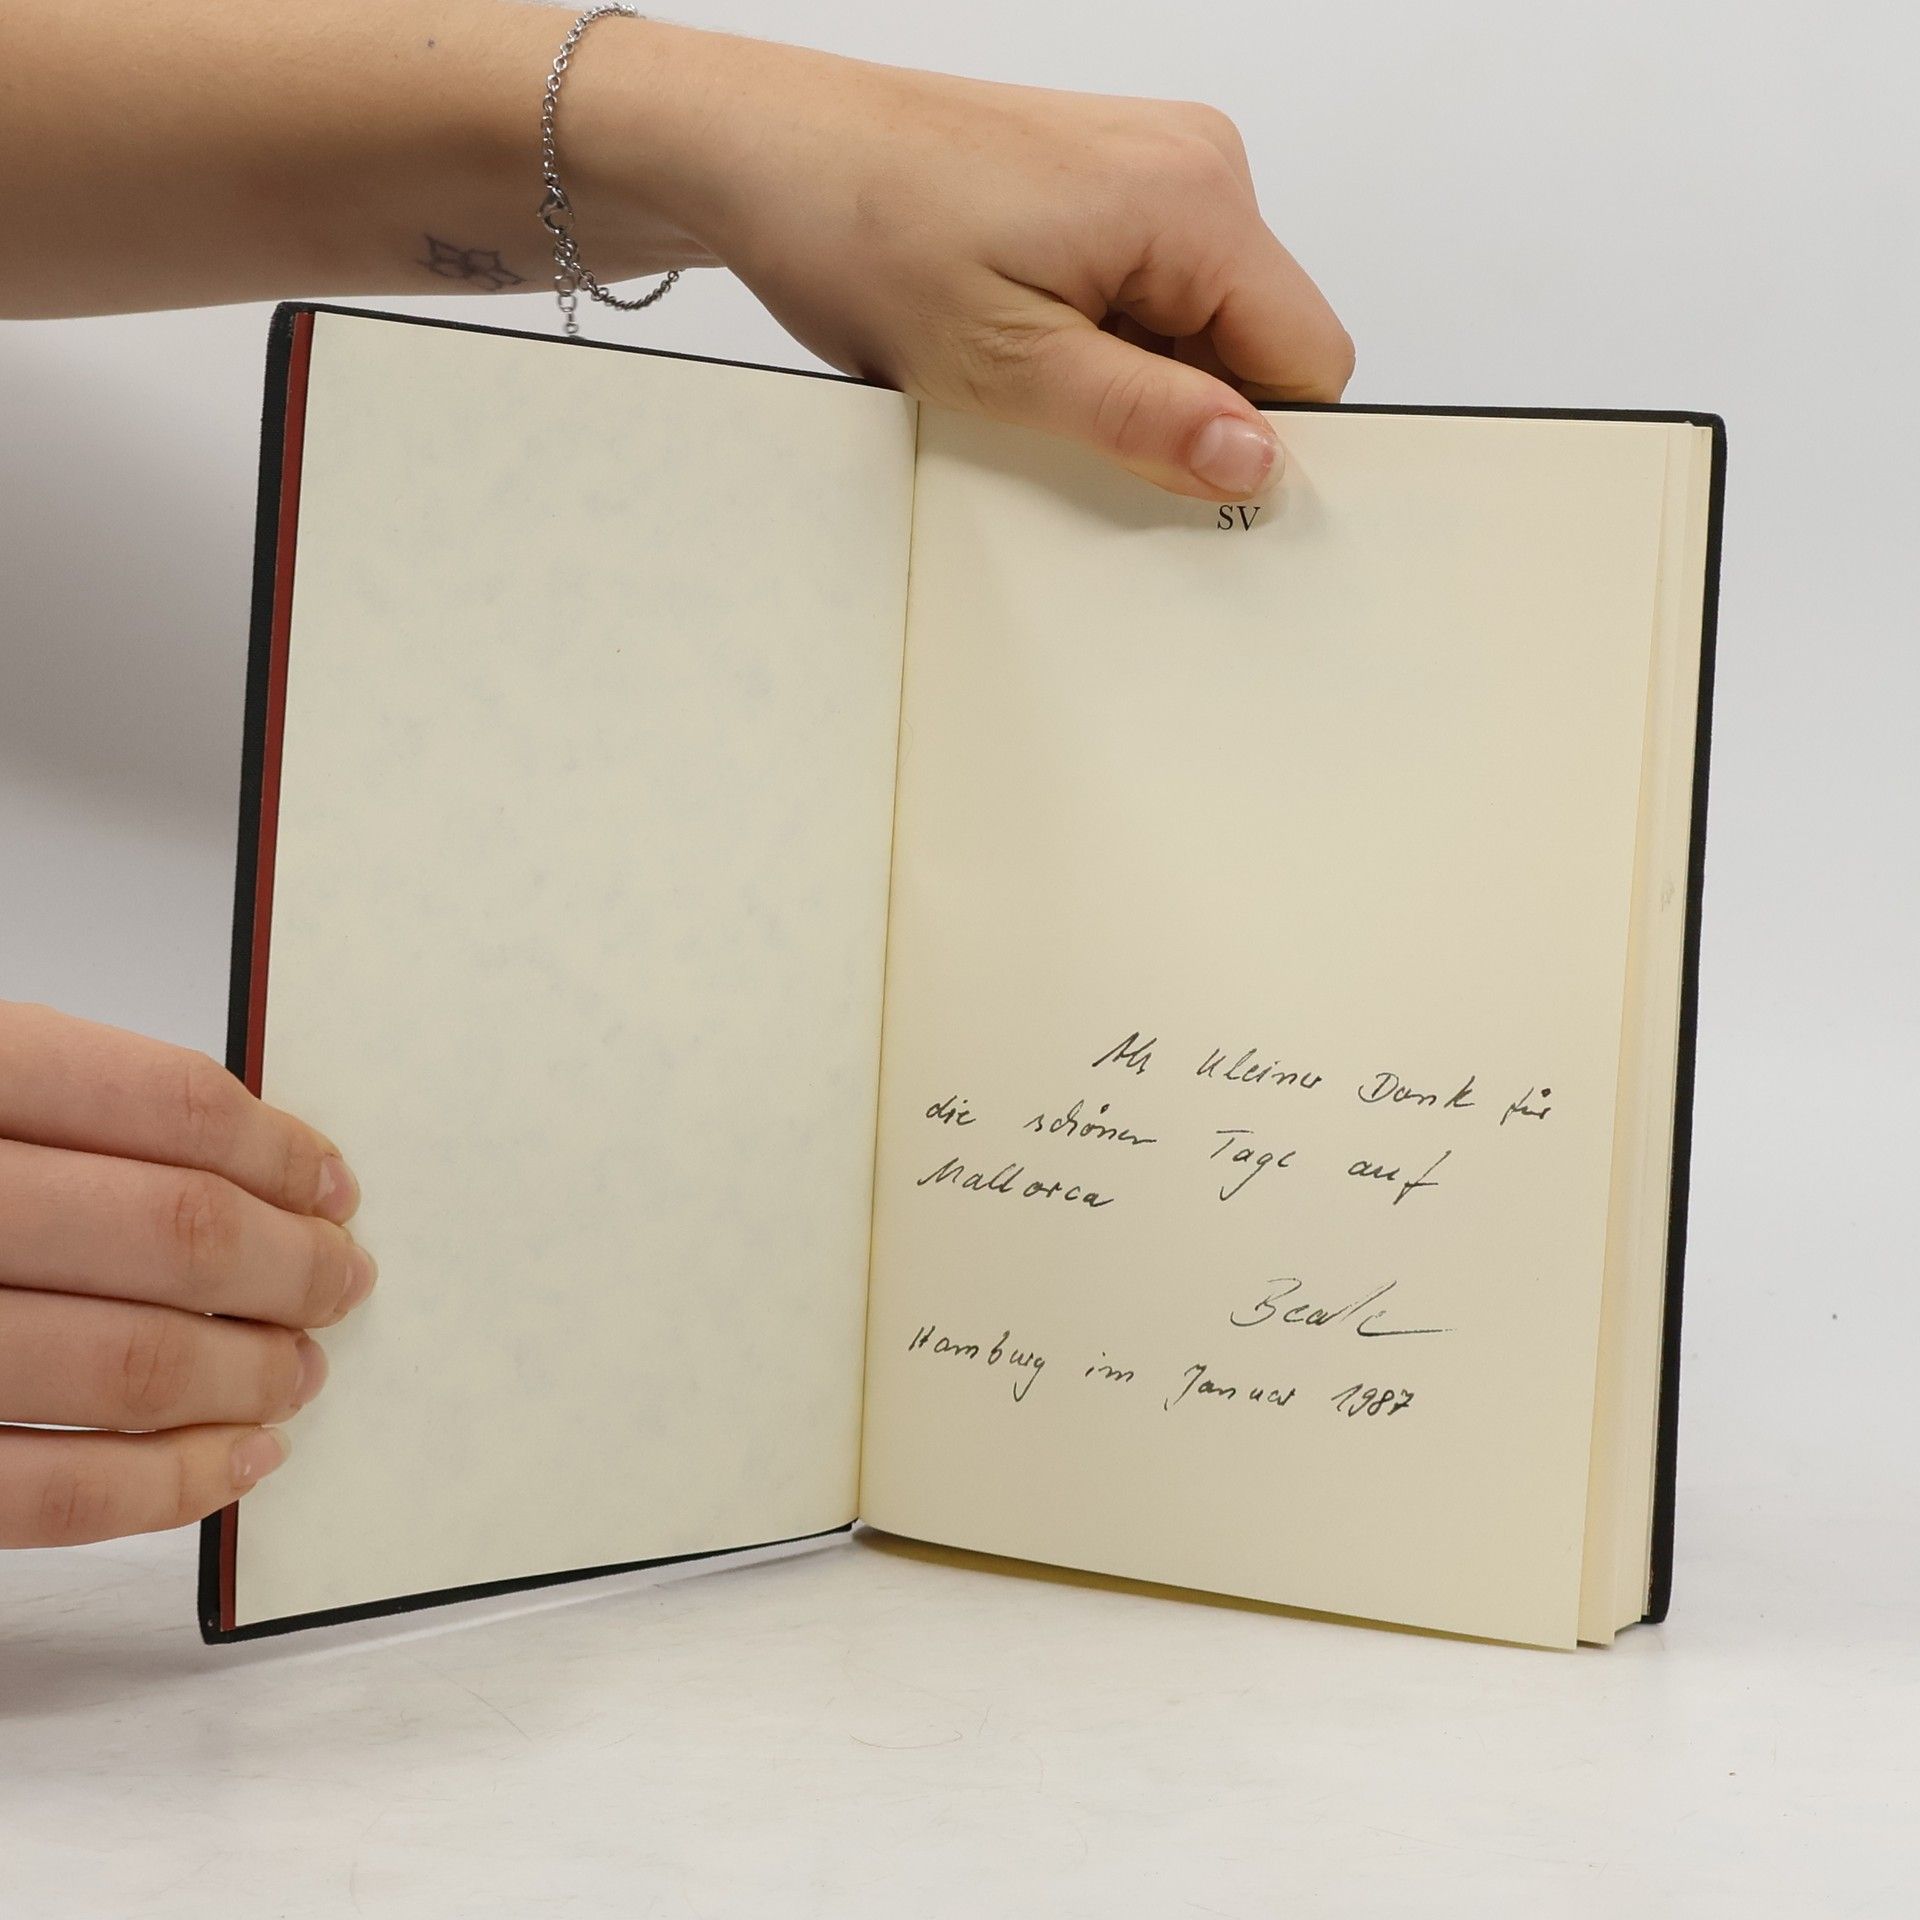 SV
Als kleiner Dank für
die schönen Tage auf
Mallorca
Beate
Hamburg im Januar 1987